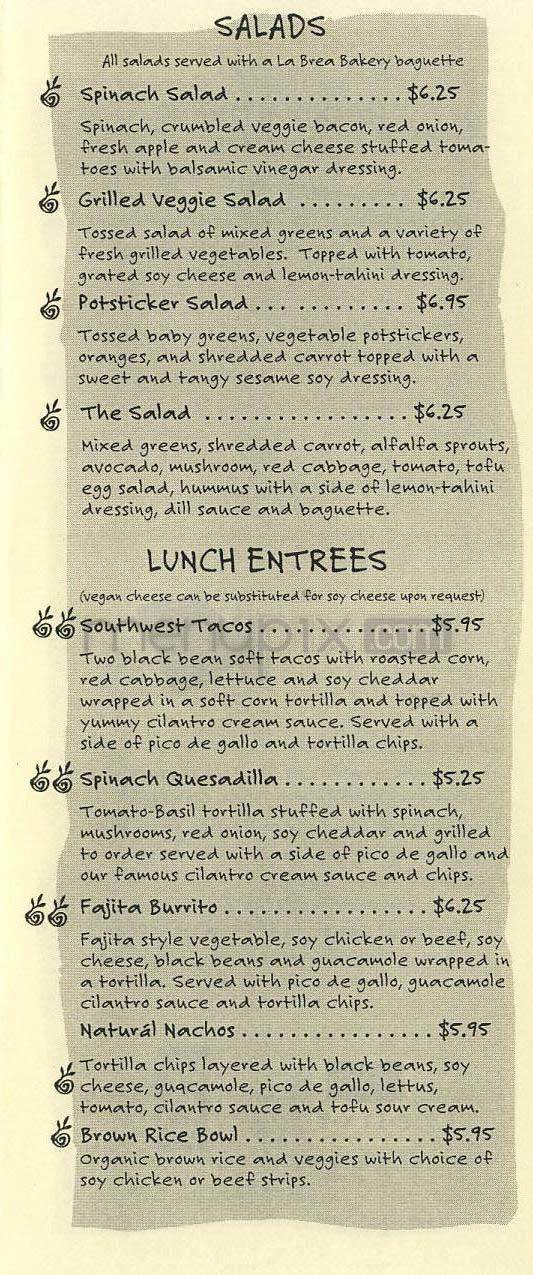 SALADS
All salads served with a La Brea Bakery baguette
Spinach Salad . . . . . . . . . . . . . . . $6.25
Spinach, crumbled veggie bacon, red onion,
fresh apple and cream cheese stuffed toma-
toes with balsamic vinegar dressing.
Grilled Veggie Salad . . . . . . . . . $6.25
Tossed salad of mixed greens and a variety of
fresh grilled vegetables. Topped with tomato,
grated soy cheese and lemon-tahini dressing.
Potsticker Salad . . . . . . . . . . . . . $6.95
Tossed baby greens, vegetable potstickers,
oranges, and shredded carrot topped with a
sweet and tangy sesame soy dressing.
The Salad . . . . . . . . . . . . . . . . . . $6.25
Mixed greens, shredded carrot, alfalfa sprouts,
avocado, mushroom, red cabbage, tomato, tofu
egg salad, hummus with a side of lemon-tahini
dressing, dill sauce and baguette.
LUNCH ENTREES
(vegan cheese can be substituted for soy cheese upon request)
Southwest Tacos . . . . . . . . . . . . . . . $5.95
Two black bean soft tacos with roasted corn,
red cabbage, lettuce and soy cheddar
wrapped in a soft corn tortilla and topped with
yummy cilantro cream sauce. Served with a
side of pico de gallo and tortilla chips.
Spinach Quesadilla . . . . . . . . . . . . $5.25
Tomato-Basil tortilla stuffed with spinach,
mushrooms, red onion, soy cheddar and grilled
to order served with a side of pico de gallo and
our famous cilantro cream sauce and chips.
Fajita Burrito . . . . . . . . . . . . . . . . . . $6.25
Fajita style vegetable, soy chicken or beef, soy
cheese, black beans and guacamole wrapped in
a tortilla. Served with pico de gallo, guacamole
cilantro sauce and tortilla chips.
Naturál Nachos . . . . . . . . . . . . . . . . $5.95
Tortilla chips layered with black beans, soy
cheese, guacamole, pico de gallo, lettus,
tomato, cilantro sauce and tofu sour cream.
Brown Rice Bowl . . . . . . . . . . . . . . . . $5.95
Organic brown rice and veggies with choice of
soy chicken or beef strips.